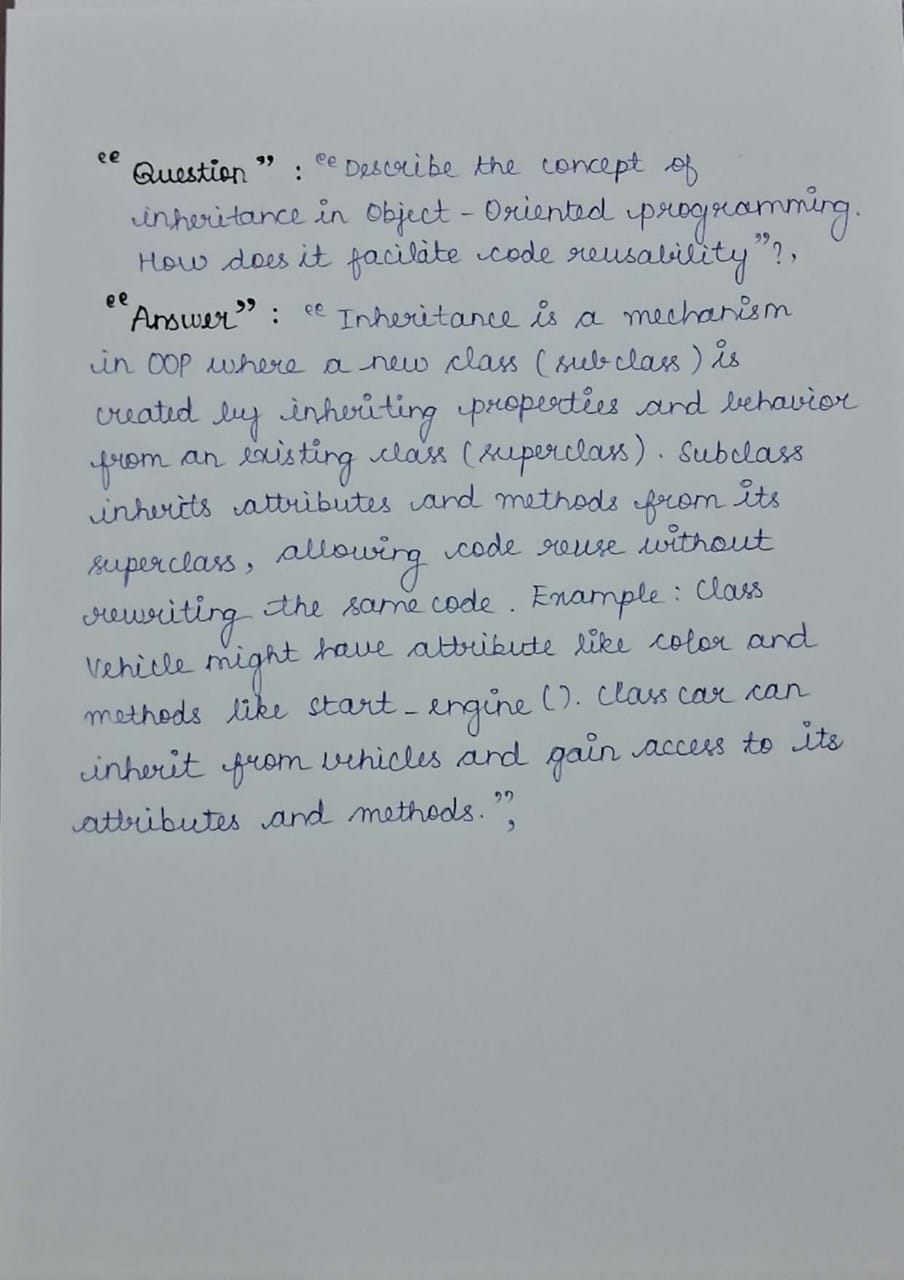 "Question" : "Describe the concept of
inheritance in Object - Oriented programming.
How does it facilate code reusability"?,
"Answer" : "Inheritance is a mechanism
in OOP where a new class (subclass) is
created by inheriting properties and behavior
from an existing class (superclass). Subclass
inherits attributes and methods from its
superclass, allowing code reuse without
rewriting the same code. Example : Class
Vehicle might have attribute like color and
methods like start_engine (). Class car can
inherit from vehicles and gain access to its
attributes and methods.",